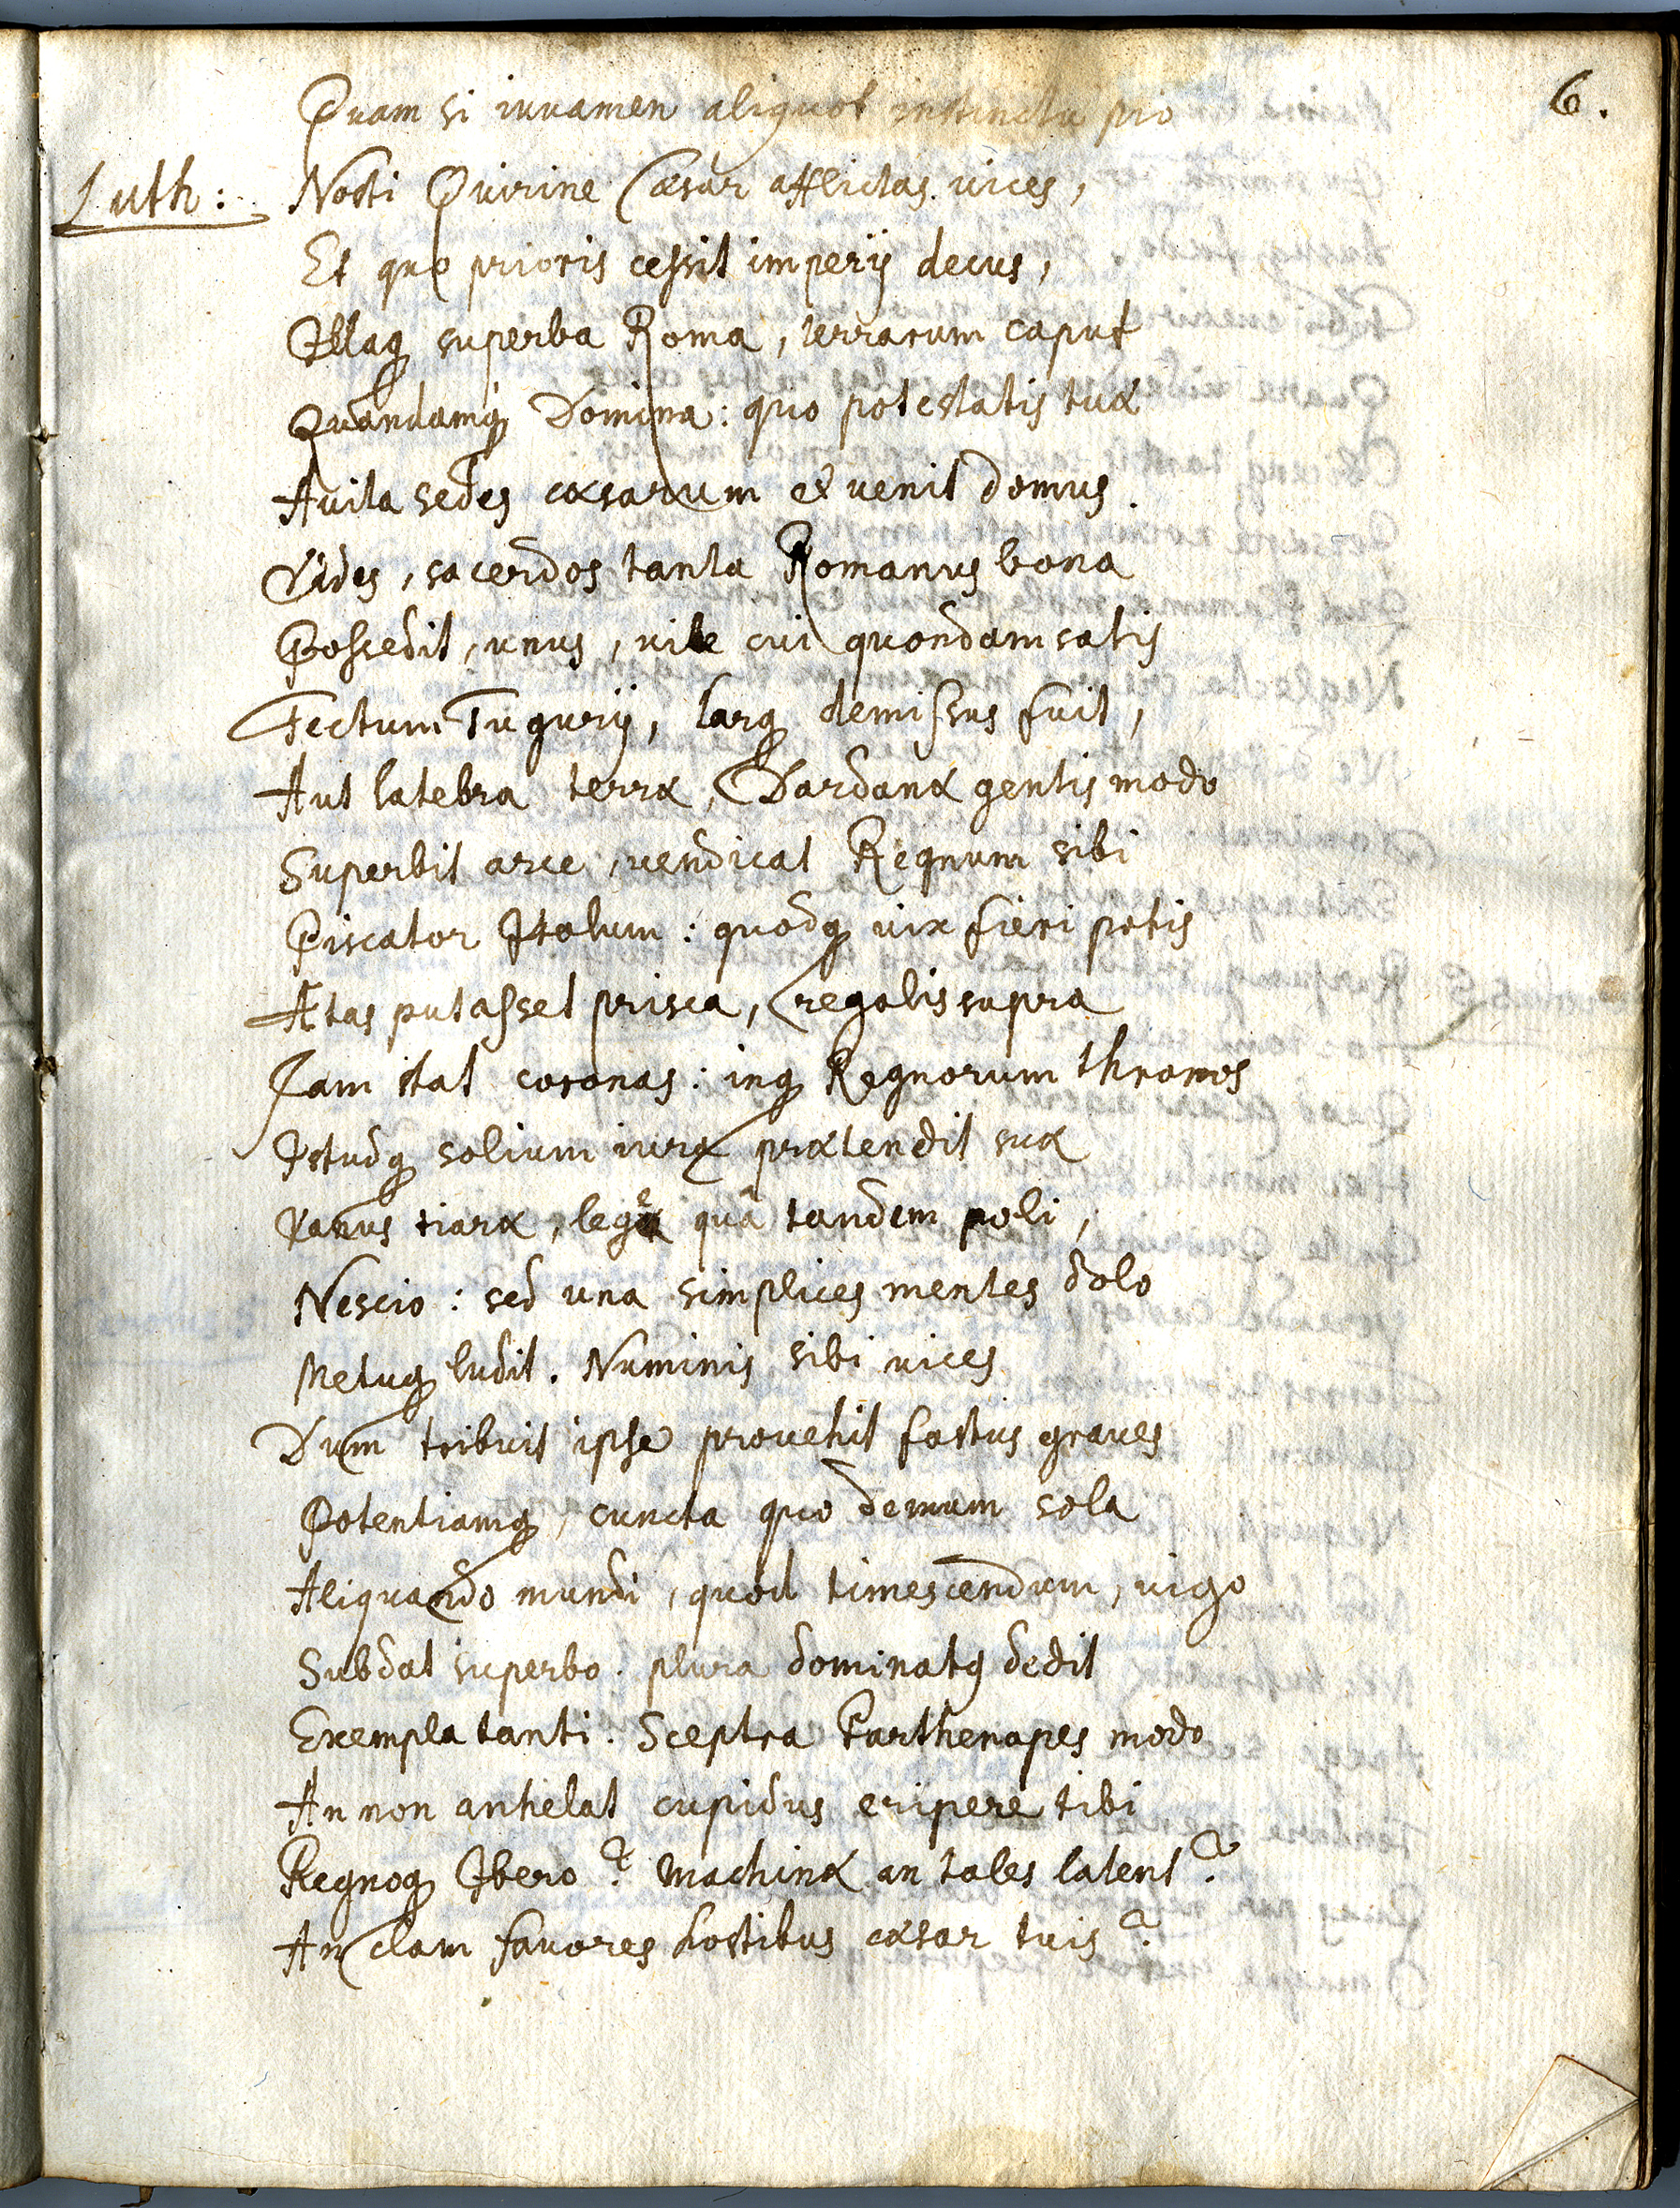 6.
Quam si iuvamen aliquot instinctu pio
Luth: Nosti Quirine Cæsar afflictas vices,
Et quo prioris cessit imperij decus,
Illaq superba Roma, terrarum caput
Quandamq Domina: quo potestatis tuæ
Avita sedes cæsarum et venit domus.
Vides, sacerdos tanta Romanus bona
Possedit, unus, vile cui quondam satis
Tectum Tugurij, larq demissus fuit,
Aut latebra terræ, Dardanæ gentis modo
Superbit arce, vendicat Regnum sibi
Piscator Italum: quodq vix fieri potis
Ætas putasset prisca, regalis supra
Jam stat coronas: inq Regnorum thronos
Istudq solium iura prætendit suæ
Vanus tiaræ, lege quâ tandem poli,
Nescio: sed una simplices mentes dolo
Metuq ludit. Numinis sibi vices
Dum tribuit ipse provehit fastus graves
Potentiamq, cuncta quo demum sola
Aliquando mundi, quod timescendum, iugo
Subdat superbo. plura dominatq dedit
Exempla tanti. Sceptra Parthenopes modo
An non anhelat cupidus eripere tibi
Regnoq Ibero? Machinæ an tales latent?
An clam favores hostibus cæsar tuis?